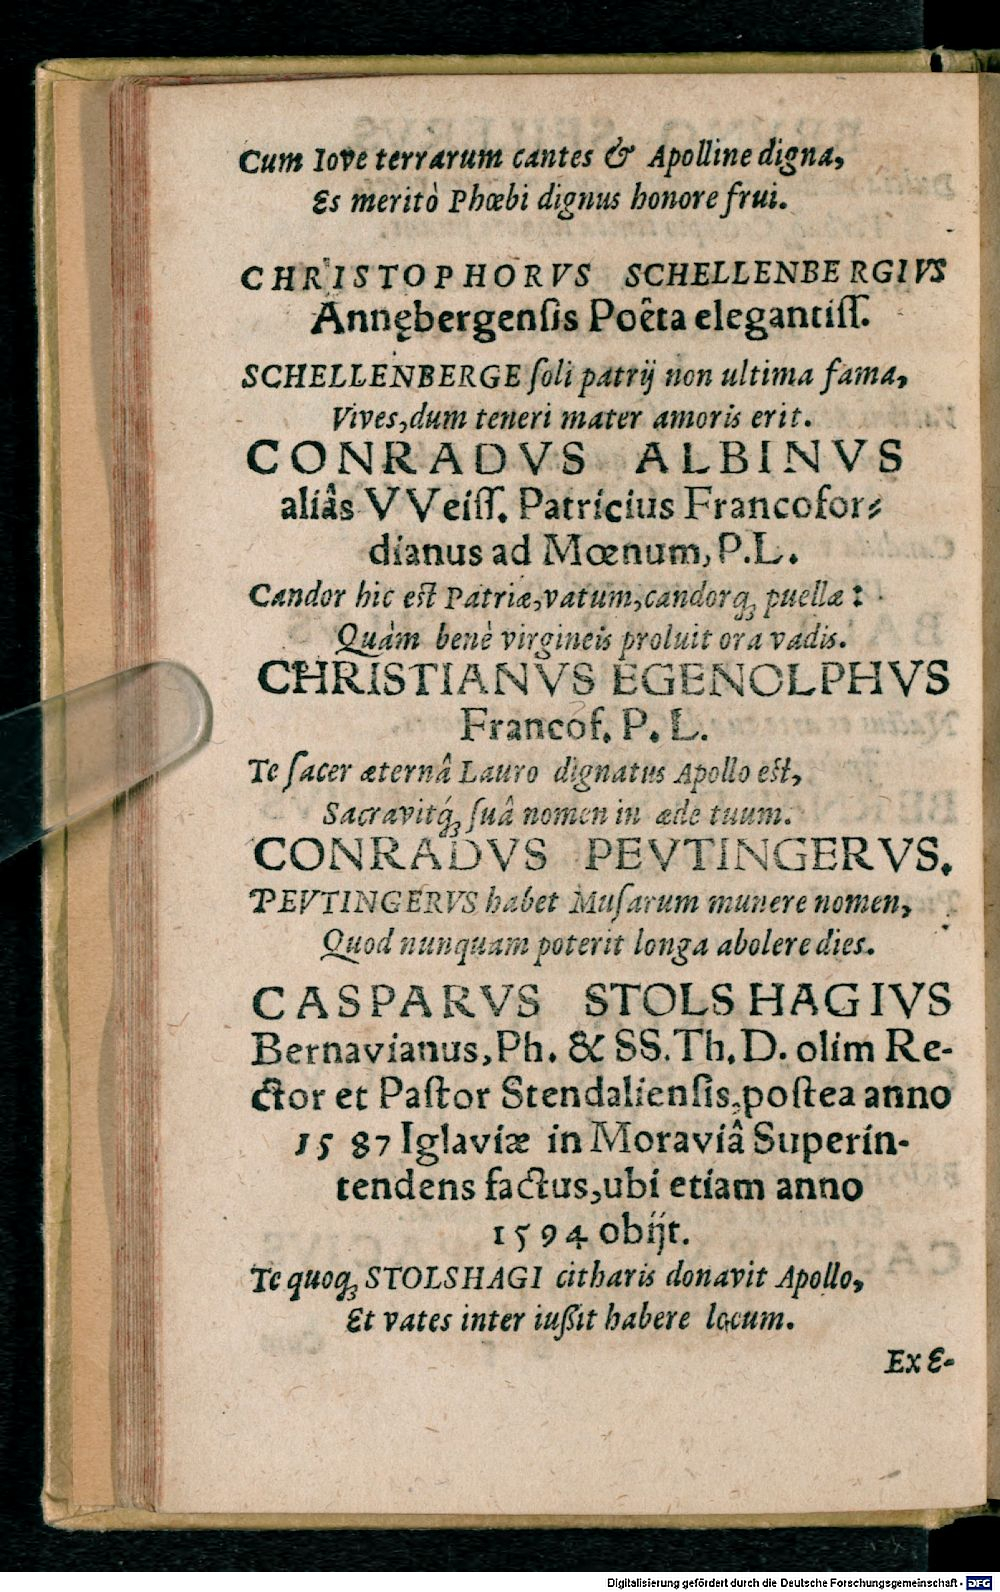 Cum Iove terrarum cantes & Apolline digna,
Es meritò Phœbi dignus honore frui.
CHRISTOPHORVS SCHELLENBERGIVS
Annębergenſis Poêta elegantiſſ.
SCHELLENBERGE ſoli patrij non ultima fama,
Vives, dum teneri mater amoris erit.
CONRADVS ALBINVS
aliâs VVeiſſ. Patricius Francofor⸗
dianus ad Mœnum, P.L.
Candor hic est Patriæ, vatum, candorq́ꝫ puellæ:
Quàm benè virgineis proluit ora vadis.
CHRISTIANVS EGENOLPHVS
Francof. P. L.
Te ſacer æternâ Lauro dignatus Apollo est,
Sacravitq́ꝫ ſuâ nomen in æde tuum.
CONRADVS PEVTINGERVS.
PEVTINGERVS habet Muſarum munere nomen,
Quod nunquam poterit longa abolere dies.
CASPARVS STOLSHAGIVS
Bernavianus, Ph. & SS. Th. D. olim Re-
ctor et Paſtor Stendalienſis, poſtea anno
1587 Iglaviæ in Moraviâ Superin-
tendens factus, ubi etiam anno
1594 obijt.
Te quoqꝫ STOLSHAGI citharis donavit Apollo,
Et vates inter iußit habere locum.
Ex E-
Digitalisierung gefördert durch die Deutsche Forschungsgemeinschaft - DFG